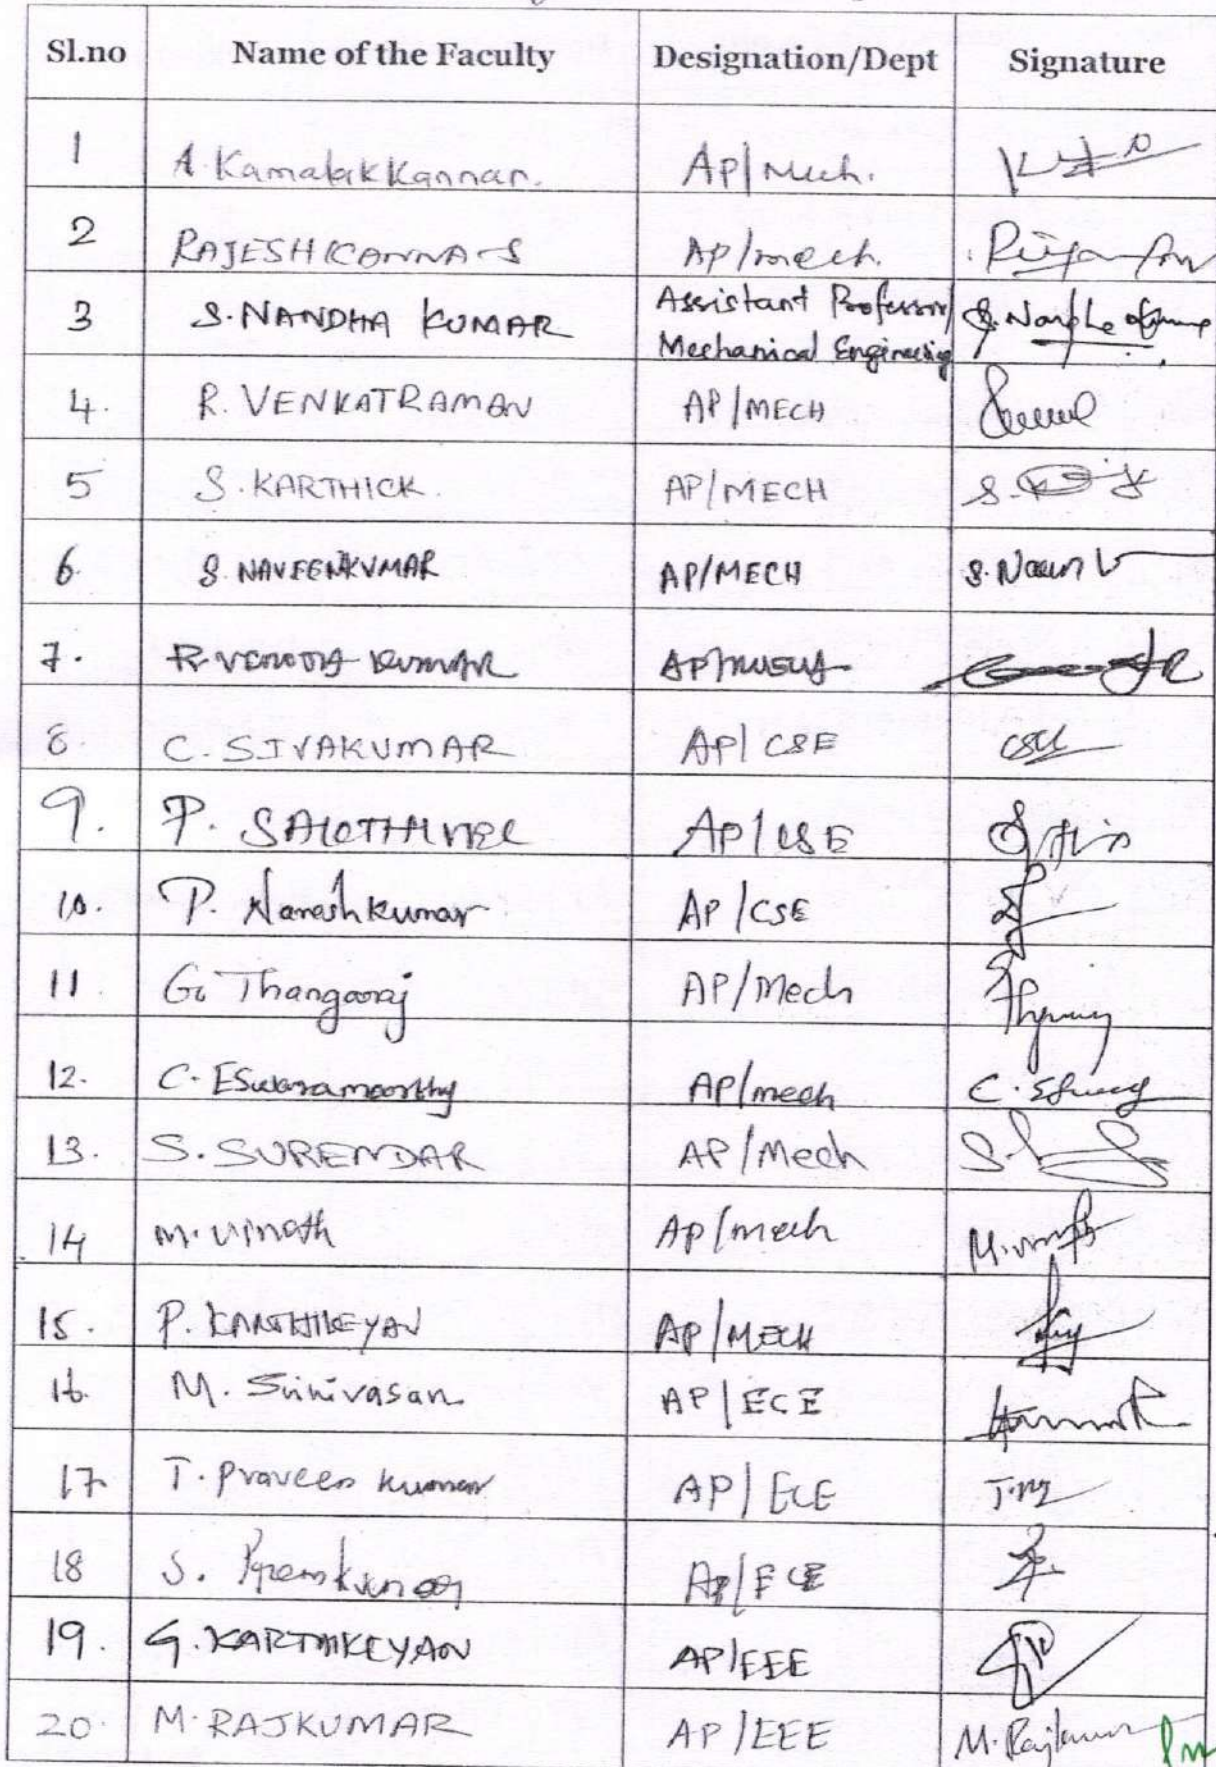 Sl.no Name of the Faculty Designation/Dept Signature
1 A. Kamalakkannan. AP/Mech.
2 RAJESHKANNA S AP/mech.
3 S. NANDHA KUMAR Assistant Professor/
Mechanical Engineering
4. R. VENKATRAMAN AP/MECH
5 S. KARTHICK. AP/MECH
6. S. NAVEENKUMAR AP/MECH S. Naveen
7. R. VINOTH KUMAR AP/MECH
8. C. SIVAKUMAR AP/CSE
9. P. SAKTHIVEL AP/CSE
10. P. Nareshkumar AP/CSE
11. G. Thangaraj AP/Mech
12. C. Eswaramoorthy AP/mech
13. S. SURENDAR AP/Mech
14 M. Vinoth AP/mech
15. P. KARTHIKEYAN AP/MECH
16. M. Srinivasan AP/ECE
17. T. Praveen kumar AP/ECE
18 S. Premkumar AP/ECE
19. G. KARTHIKEYAN AP/EEE
20. M. RAJKUMAR AP/EEE M. Rajkumar